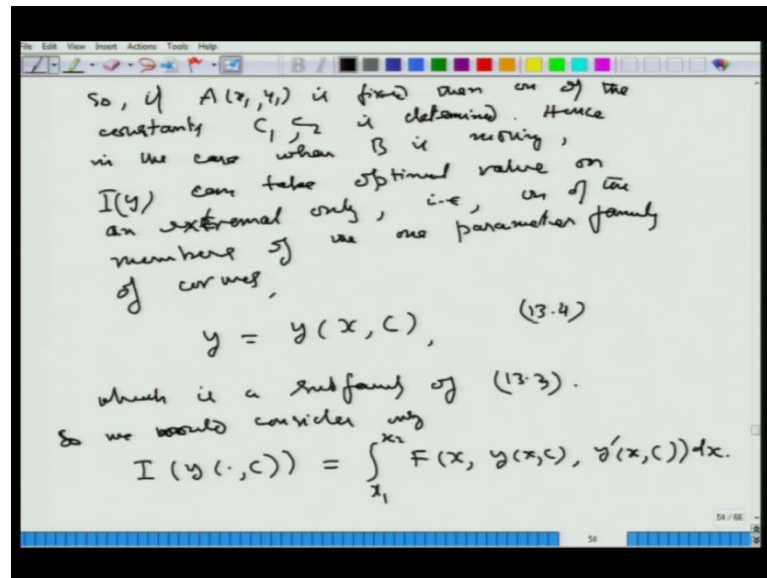 File Edit View Insert Actions Tools Help
B I
So, if A(x₁, y₁) is fixed then on of the
constants C₁, C₂ is detemined. Hence
in the case when B is moving,
I(y) can take optimal value on
an extremal only, i.e, on of the
members of the one parameter family
of curves,
y = y(x, C), (13.4)
which is a subfamily of (13.3).
So we would consider only
I(y(·,C)) = ∫_{x₁}^{x₂} F(x, y(x,C), y'(x,C)) dx.
54 / 66
54